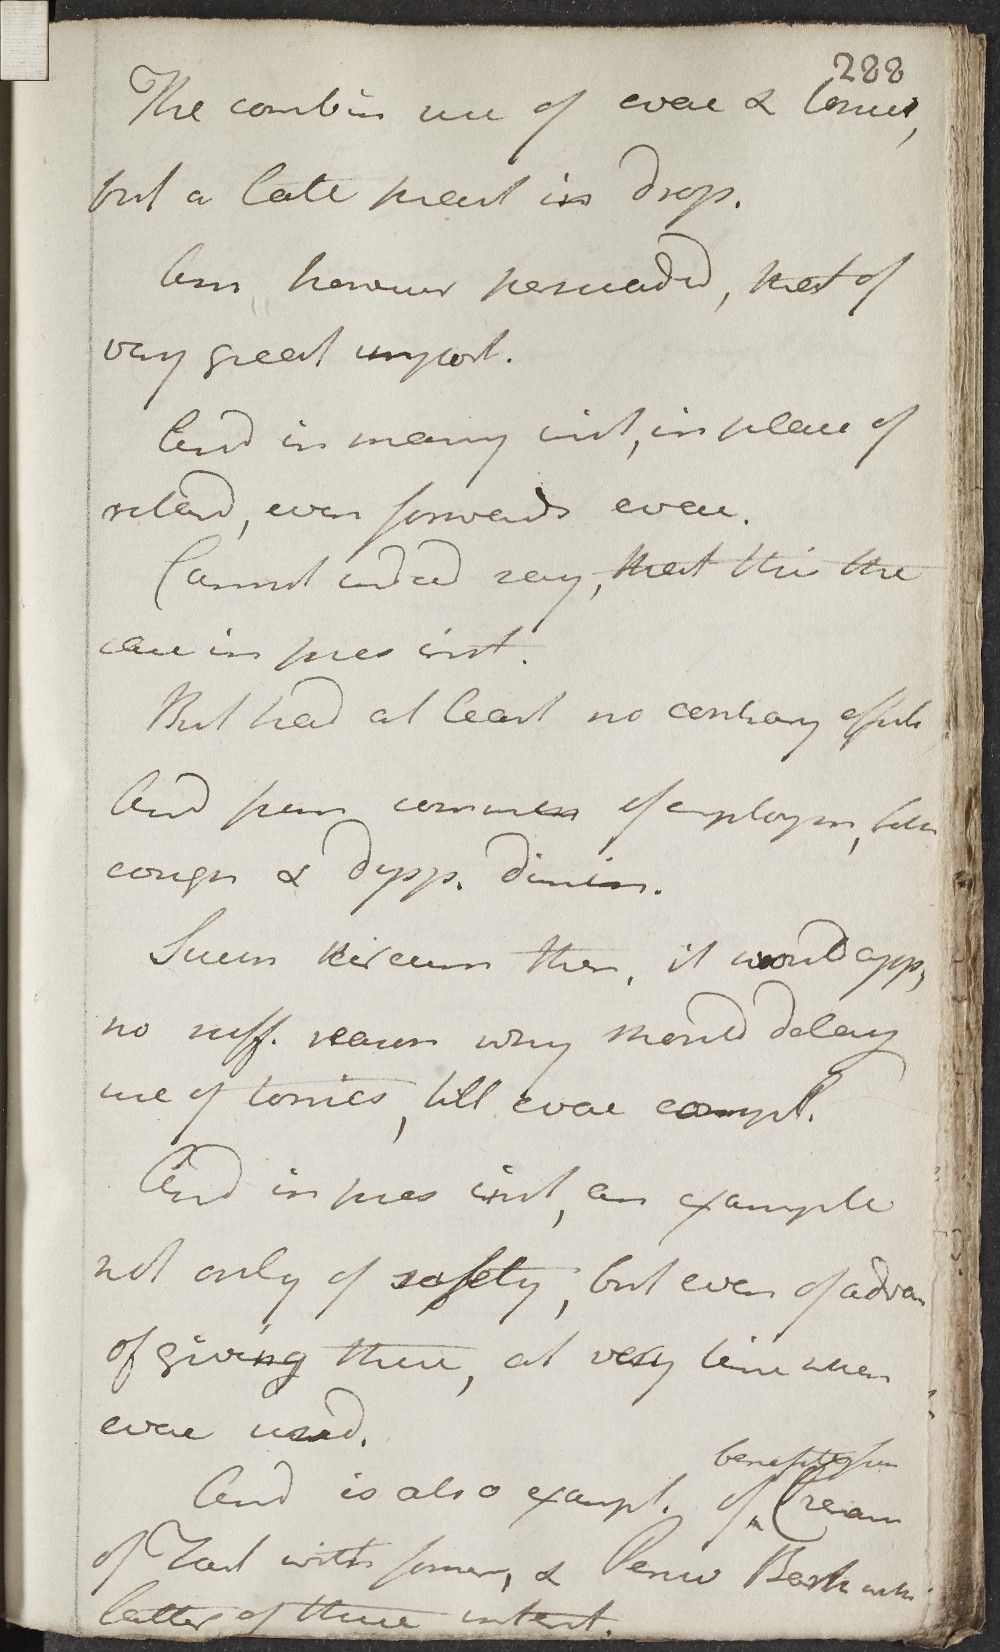 288
The combin use of evac & tonics,
but a late pract in drop.
Am however persuaded, that of
very great import.
And in many inst, in place of
retard, even forwards evac.
Cannot indeed say, that this the
case in pres inst.
But had at least no contrary effects
And from commen of employm, both
cough & dysp. dimin.
Such circum then, it would app,
no suff. reason why should delay
use of tonics, till evac compl.
And in pres inst, an example
not only of safety, but even of advan
of giving these, at very time when
evac used.
And is also exampl. of benefits from Cream
of Tart with former, & Peruv Bark with
latter of these intent.